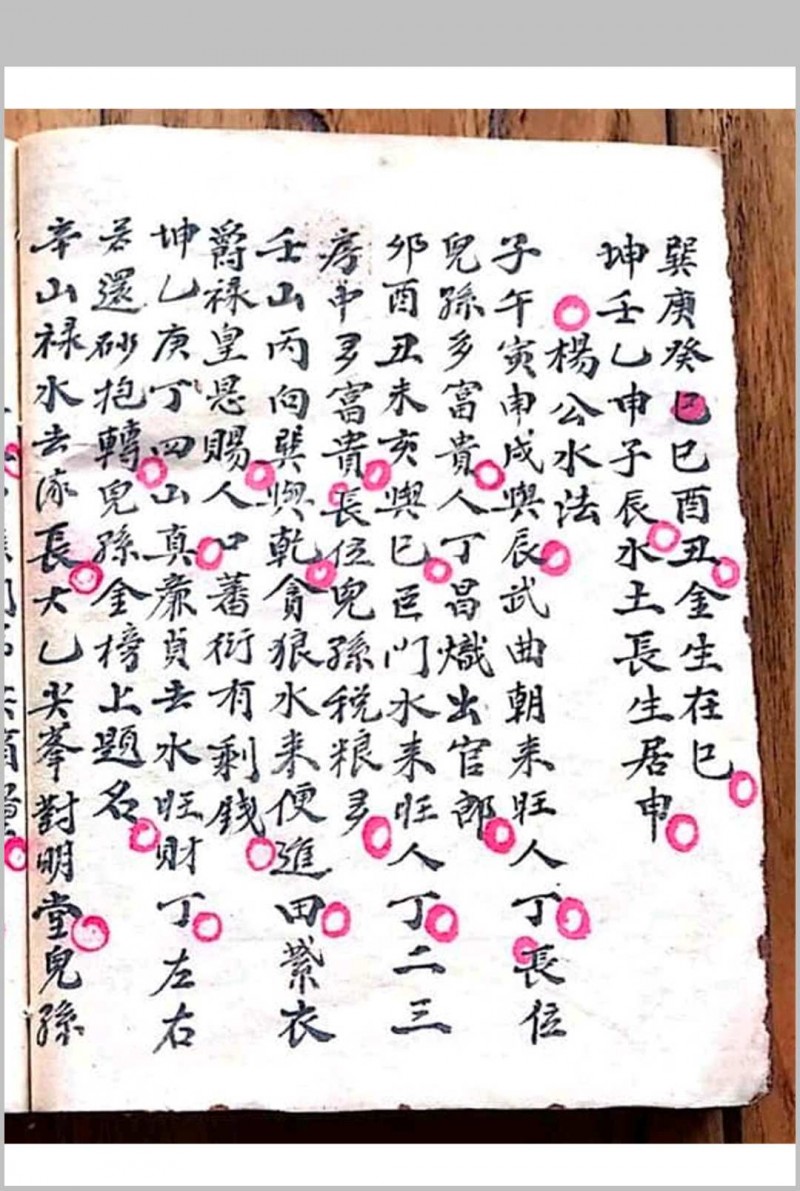 巽庚癸巳巳酉丑金生在巳
坤壬乙申子辰水土長生居申
楊公水法
子午寅申戍與辰武曲朝来旺人丁長位
兒孫多富貴人丁昌熾出官郎
卯酉丑未亥與巳巨门水来旺人丁二三
房中多富貴長位兒孫税粮多
壬山丙向巽與乾貪狼水来便進田紫衣
爵禄皇恩賜人口蕃衍有剩錢
坤乙庚丁四山真廉貞去水旺財丁左右
若還砂抱轉兒孫金榜上題名
辛山禄水去流長大乙尖峯對明堂兒孫